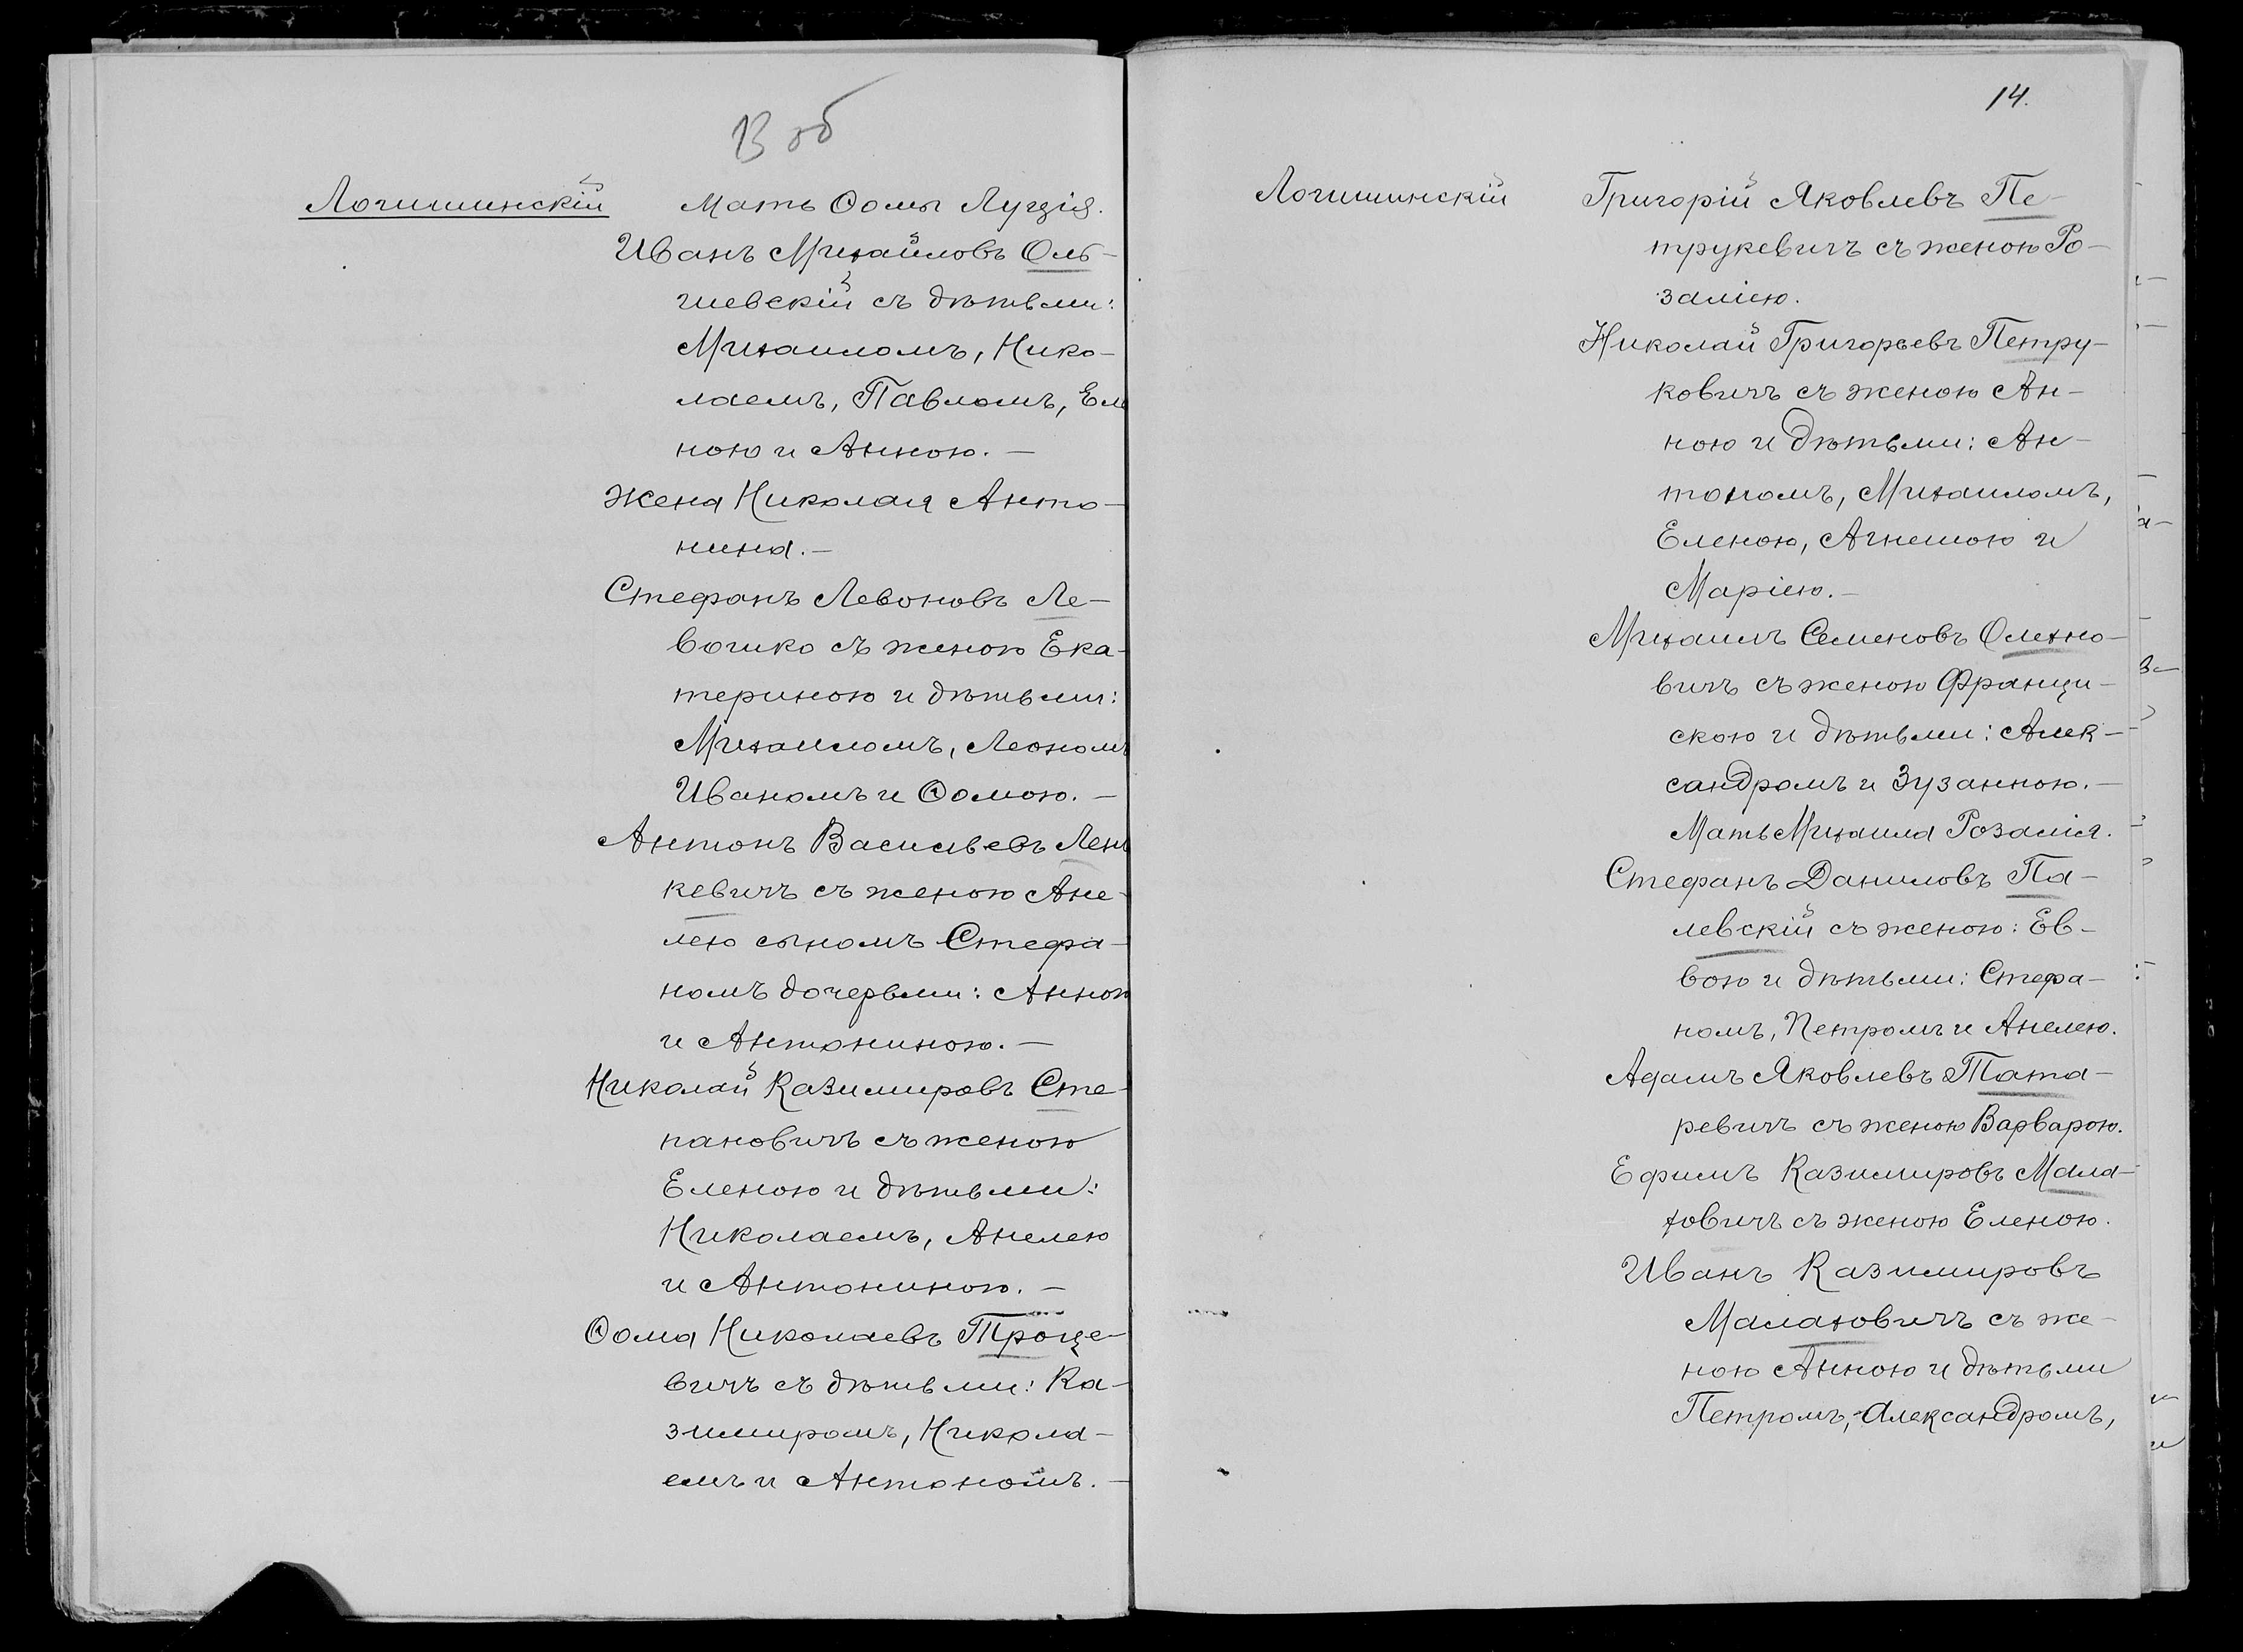 13 об
Логишинскій
Мать Ѳомы Луція.
Иванъ Михайловъ Оль-
шевскій съ дѣтьми:
Михаиломъ, Нико-
лаемъ, Павломъ, Еле
ною и Анною. —
Жена Николая Анто-
нина. —
Стефанъ Левоновъ Ле-
вошко съ женою Ека-
териною и дѣтьми:
Михаиломъ, Леономъ
Иваномъ и Ѳомою. —
Антонъ Васильевъ
кевичъ съ женою Ане-
лею сыномъ Стефа-
номъ дочерьми: Анною
и Антониною. —
Николай Казимировъ Сте-
пановичъ съ женою
Еленою и дѣтьми:
Николаемъ, Анелею
и Антониною. —
Ѳома Николаевъ Троце-
вичъ съ дѣтьми: Ка-
зимиромъ, Никола-
емъ и Антономъ. —
14.
Логишинскій
Григорій Яковлевъ Пе-
трукевичъ съ женою Ро-
заліею.
Николай Григорьевъ Петру-
ковичъ съ женою Ан-
ною и дѣтьми: Ан-
тономъ, Михаиломъ,
Еленою, Агнешою и
Маріею. —
Михаилъ Семеновъ Олехно-
вичъ съ женою Франци-
скою и дѣтьми: Алек-
сандромъ и Зузанною. —
Мать Михаила Розалія.
Стефанъ Даниловъ Па-
левскій съ женою: Ев-
вою и дѣтьми: Стефа-
номъ, Петромъ и Анелею.
Адамъ Яковлевъ Тата-
ревичъ съ женою Варварою.
Ефимъ Казимировъ Мала-
ховичъ съ женою Еленою.
Иванъ Казимировъ
Малаховичъ съ же-
ною Анною и дѣтьми
Петромъ, Александромъ,